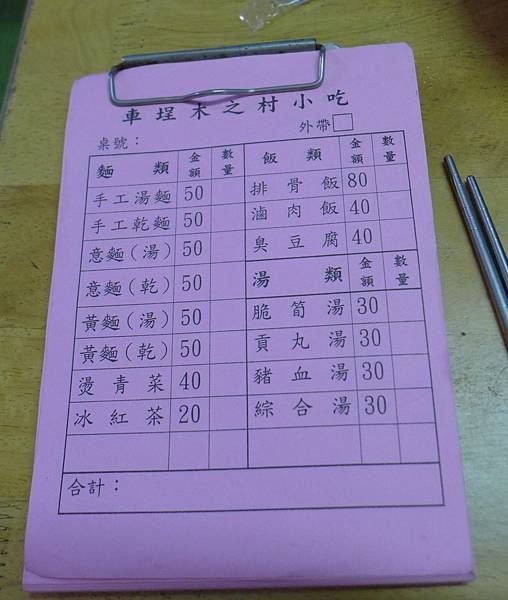 車埕木之村小吃
桌號：
外帶
麵類 金額 數量
手工湯麵 50
手工乾麵 50
意麵(湯) 50
意麵(乾) 50
黃麵(湯) 50
黃麵(乾) 50
燙青菜 40
冰紅茶 20
飯類 金額 數量
排骨飯 80
滷肉飯 40
臭豆腐 40
湯類 金額 數量
脆筍湯 30
貢丸湯 30
豬血湯 30
綜合湯 30
合計：